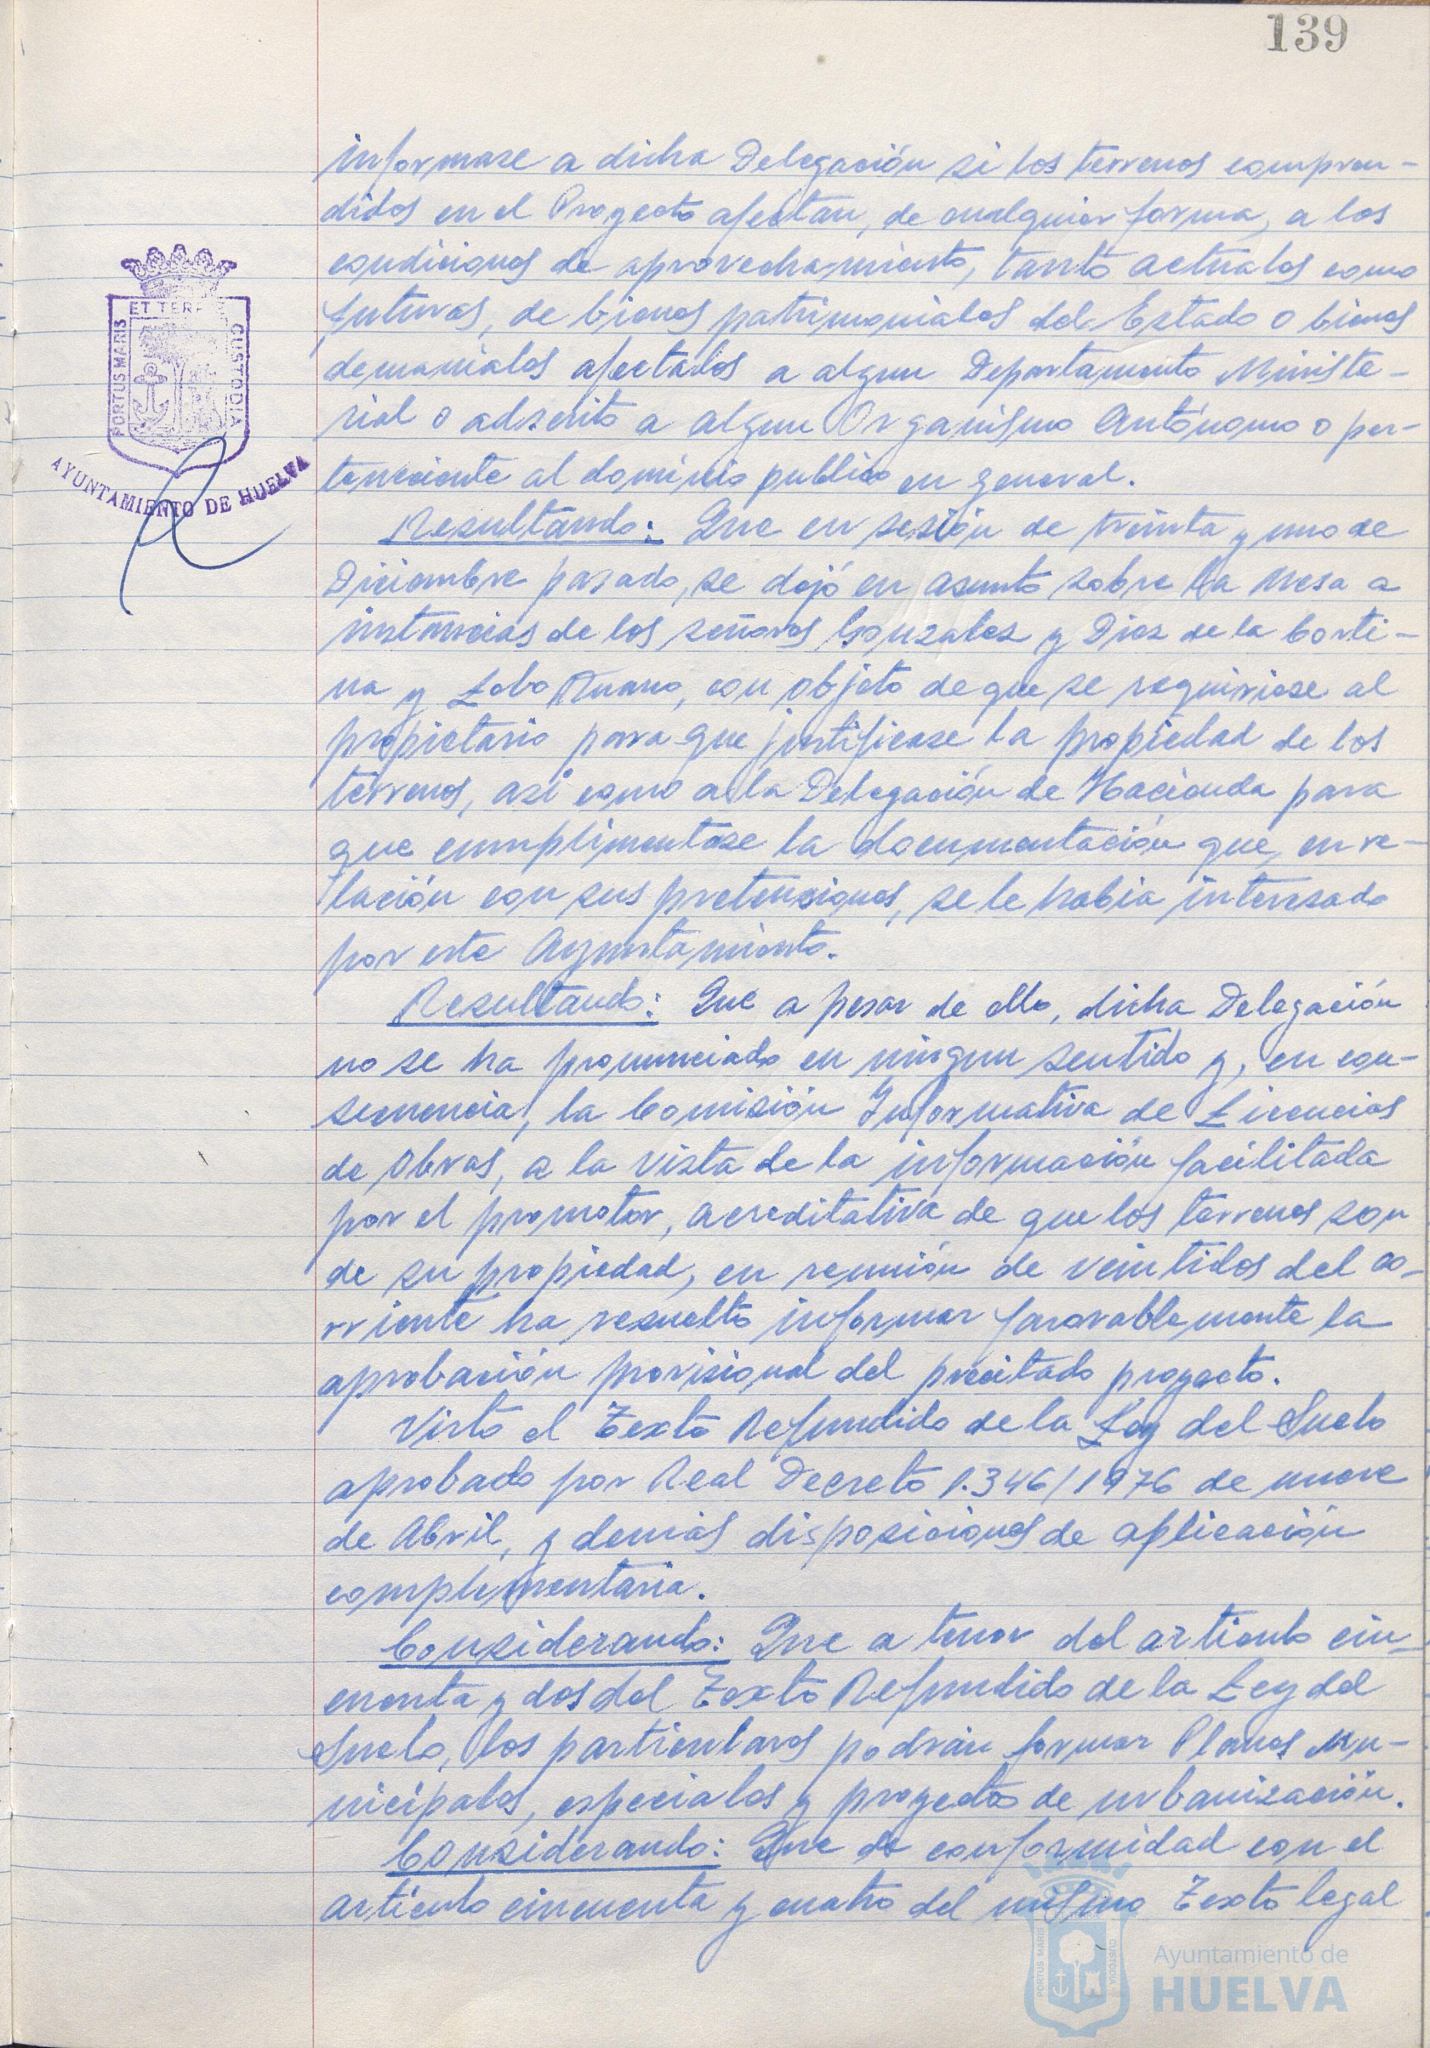 139
informase a dicha Delegación si los terrenos compren-
didos en el Proyecto afectan, de cualquier forma, a las
condiciones de aprovechamiento, tanto actuales como
futuras, de bienes patrimoniales del Estado o bienes
demaniales afectados a algun Departamento Ministe-
rial o adscrito a algun Organismo Autónomo o per-
teneciente al dominio publico en general.
Resultando: Que en sesión de treinta y uno de
Diciembre pasado, se dejó en asunto sobre la Mesa a
instancias de los señores Gonzalez y Diez de la Corti-
na y Lobo Ruano, con objeto de que se requiriese al
propietario para que justificase la propiedad de los
terrenos, asi como a la Delegación de Hacienda para
que cumplimentase la documentación que, en re-
lación con sus pretensiones, se le habia interesado
por este Ayuntamiento.
Resultando: Que a pesar de ello, dicha Delegación
no se ha pronunciado en ningun sentido y, en con-
secuencia, la Comisión Informativa de Licencias
de Obras, a la vista de la información facilitada
por el promotor, acreditativa de que los terrenos son
de su propiedad, en reunión de veintidos del co-
rriente ha resuelto informar favorablemente la
aprobación provisional del precitado proyecto.
Visto el Texto Refundido de la Ley del Suelo
aprobado por Real Decreto 1.346/1976 de nueve
de Abril, y demás disposiciones de aplicación
complementaria.
Considerando: Que a tenor del articulo cin-
cuenta y dos del Texto Refundido de la Ley del
Suelo, los particulares podrán formar Planes Mu-
nicipales, especiales y proyectos de urbanización.
Considerando: Que de conformidad con el
artículo cincuenta y cuatro del mismo Texto legal
PORTUS MARIS
ET TERRAE
CUSTODIA
AYUNTAMIENTO DE HUELVA
PORTUS MARIS
CUSTODIA
Ayuntamiento de
HUELVA